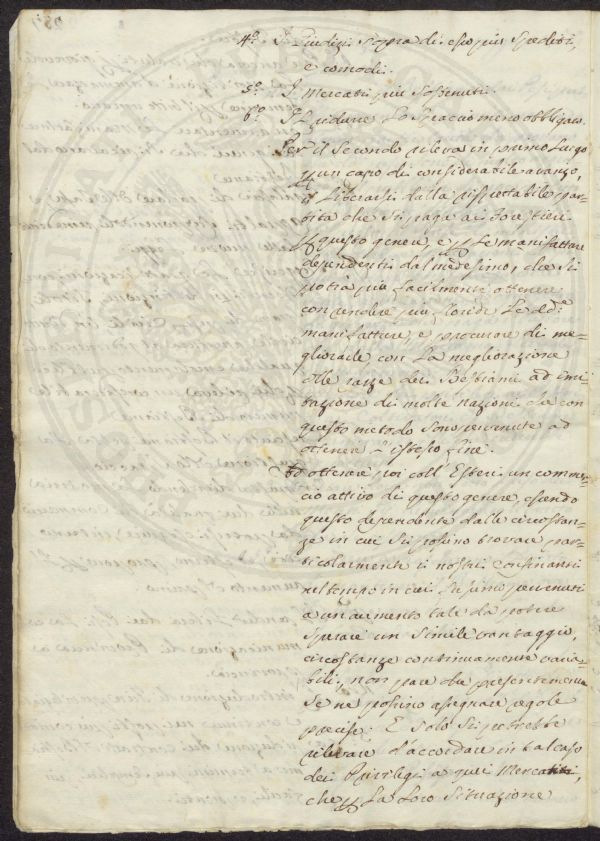 4.º I Giudizi sopra di essi più spediti,
e comodi.
5.º I Mercati più sostenuti.
6.º Il ridurre lo spaccio meno obbligato.
Per il secondo rileva in primo luogo
un capo di considerabile avanzo,
liberarsi dalla rispettabile par=
tita che si paga ai Forestieri
questo genere, e le manifatture
dependenti dal medesimo, che si
potrà più facilmente ottenere
con rendere più floride le dd.e
manifatture, e procurare di me=
gliorarle con la megliorazione
alle razze dei Bestiami ad imi=
tazione di molte nazioni che con
questo metodo sono pervenute ad
ottenere l'istesso fine.
ottenere poi coll'Esteri un commer=
cio attivo di questo genere, essendo
questo dependente dalle circostan=
ze in cui si possino trovare par=
ticolarmente i nostri confinanti
nel tempo in cui fussimo pervenuti
a un aumento tale da potere
sperare un simile vantaggio,
circostanze continuamente varia=
bili, non pare che presentemente
se ne possino assegnare regole
precise. E solo si potrebbe
rilevare d'accordare in tal caso
dei Privilegi a quei Mercanti,
che la loro situazione